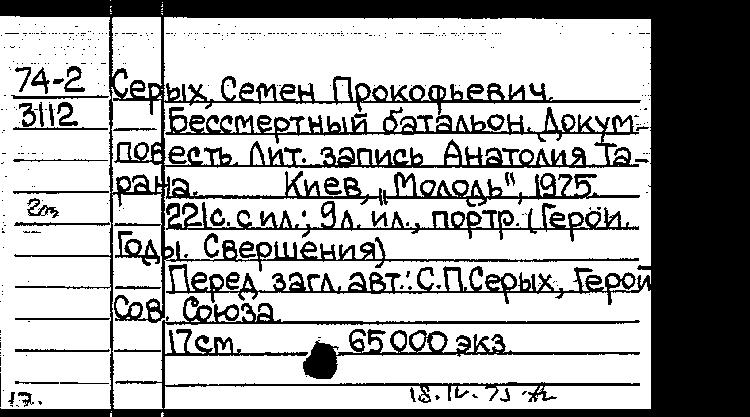 74-2 Серых, Семен Прокофьевич.
3112 Бессмертный батальон. Докум.
повесть. Лит. запись Анатолия Та-
рана. Киев, „Молодь", 1975.
221с. с ил.; 9л. ил., портр. (Герои.
Годы. Свершения)
Перед загл. авт.: С.П.Серых, Герой
Сов. Союза.
17см. 65000 экз.
18.IV.75